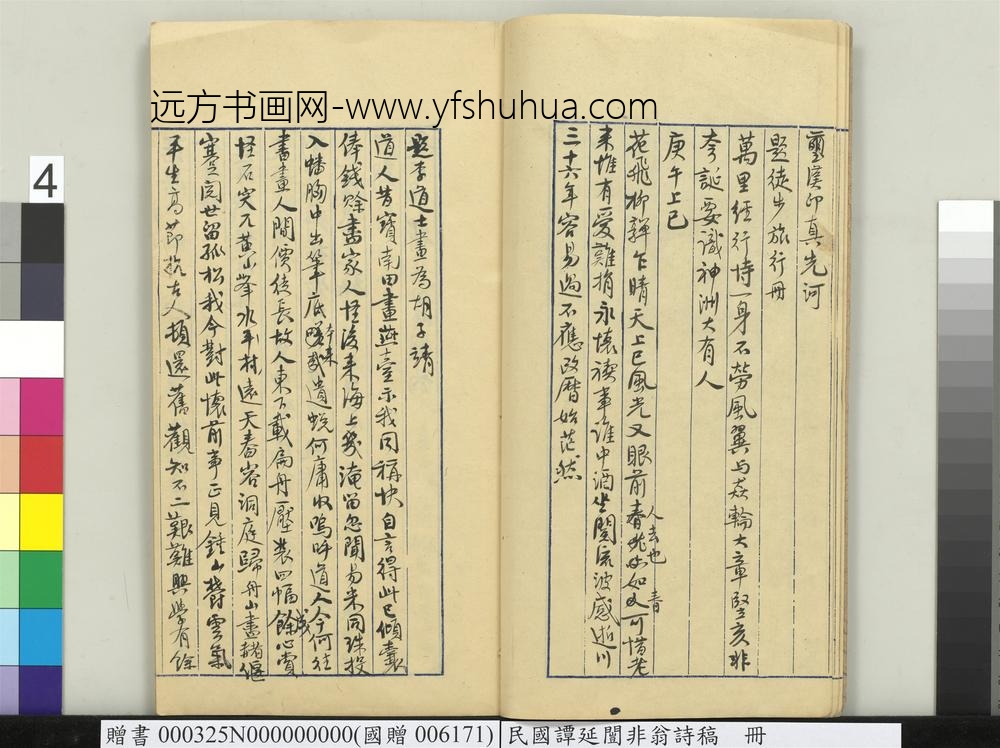 璽僕印真先河
題徒步旅行冊
萬里經行恃一身不勞風翼与猋輪大章豎亥非
夸誕要識神洲大有人
庚午上巳
花飛柳嚲乍晴天上巳風光又眼前春 如 可惜老
人去也 青
来惟有愛難捐永懷禊事誰中酒坐閱流波感逝川
三十六年容易過不應改曆始茫然
題李道士畫為胡子靖
道人昔寶南田畫燕臺示我同稱快自言得此已傾囊
俸錢賒畫家人怪後来海上幾淹留忽聞易米同珠投
入蟠胸中出筆底 遺蜕何庸收嗚呼道人今何往
本来
書畫人間儕徒長故人東下載扁舟壓裝四幅餘心賞
歲
怪石突兀黄山峯水平村遠天春容洞庭歸舟山畫赭偃
蹇閱世留孤松我今對此懷前事正見鍾山鬱雲氣
平生高節 古人頓還舊觀知不二艱難興學有餘
远方书画网-www.yfshuhua.com
4
贈書 000325N000000000(國贈 006171) 民國譚延闓非翁詩稿 冊